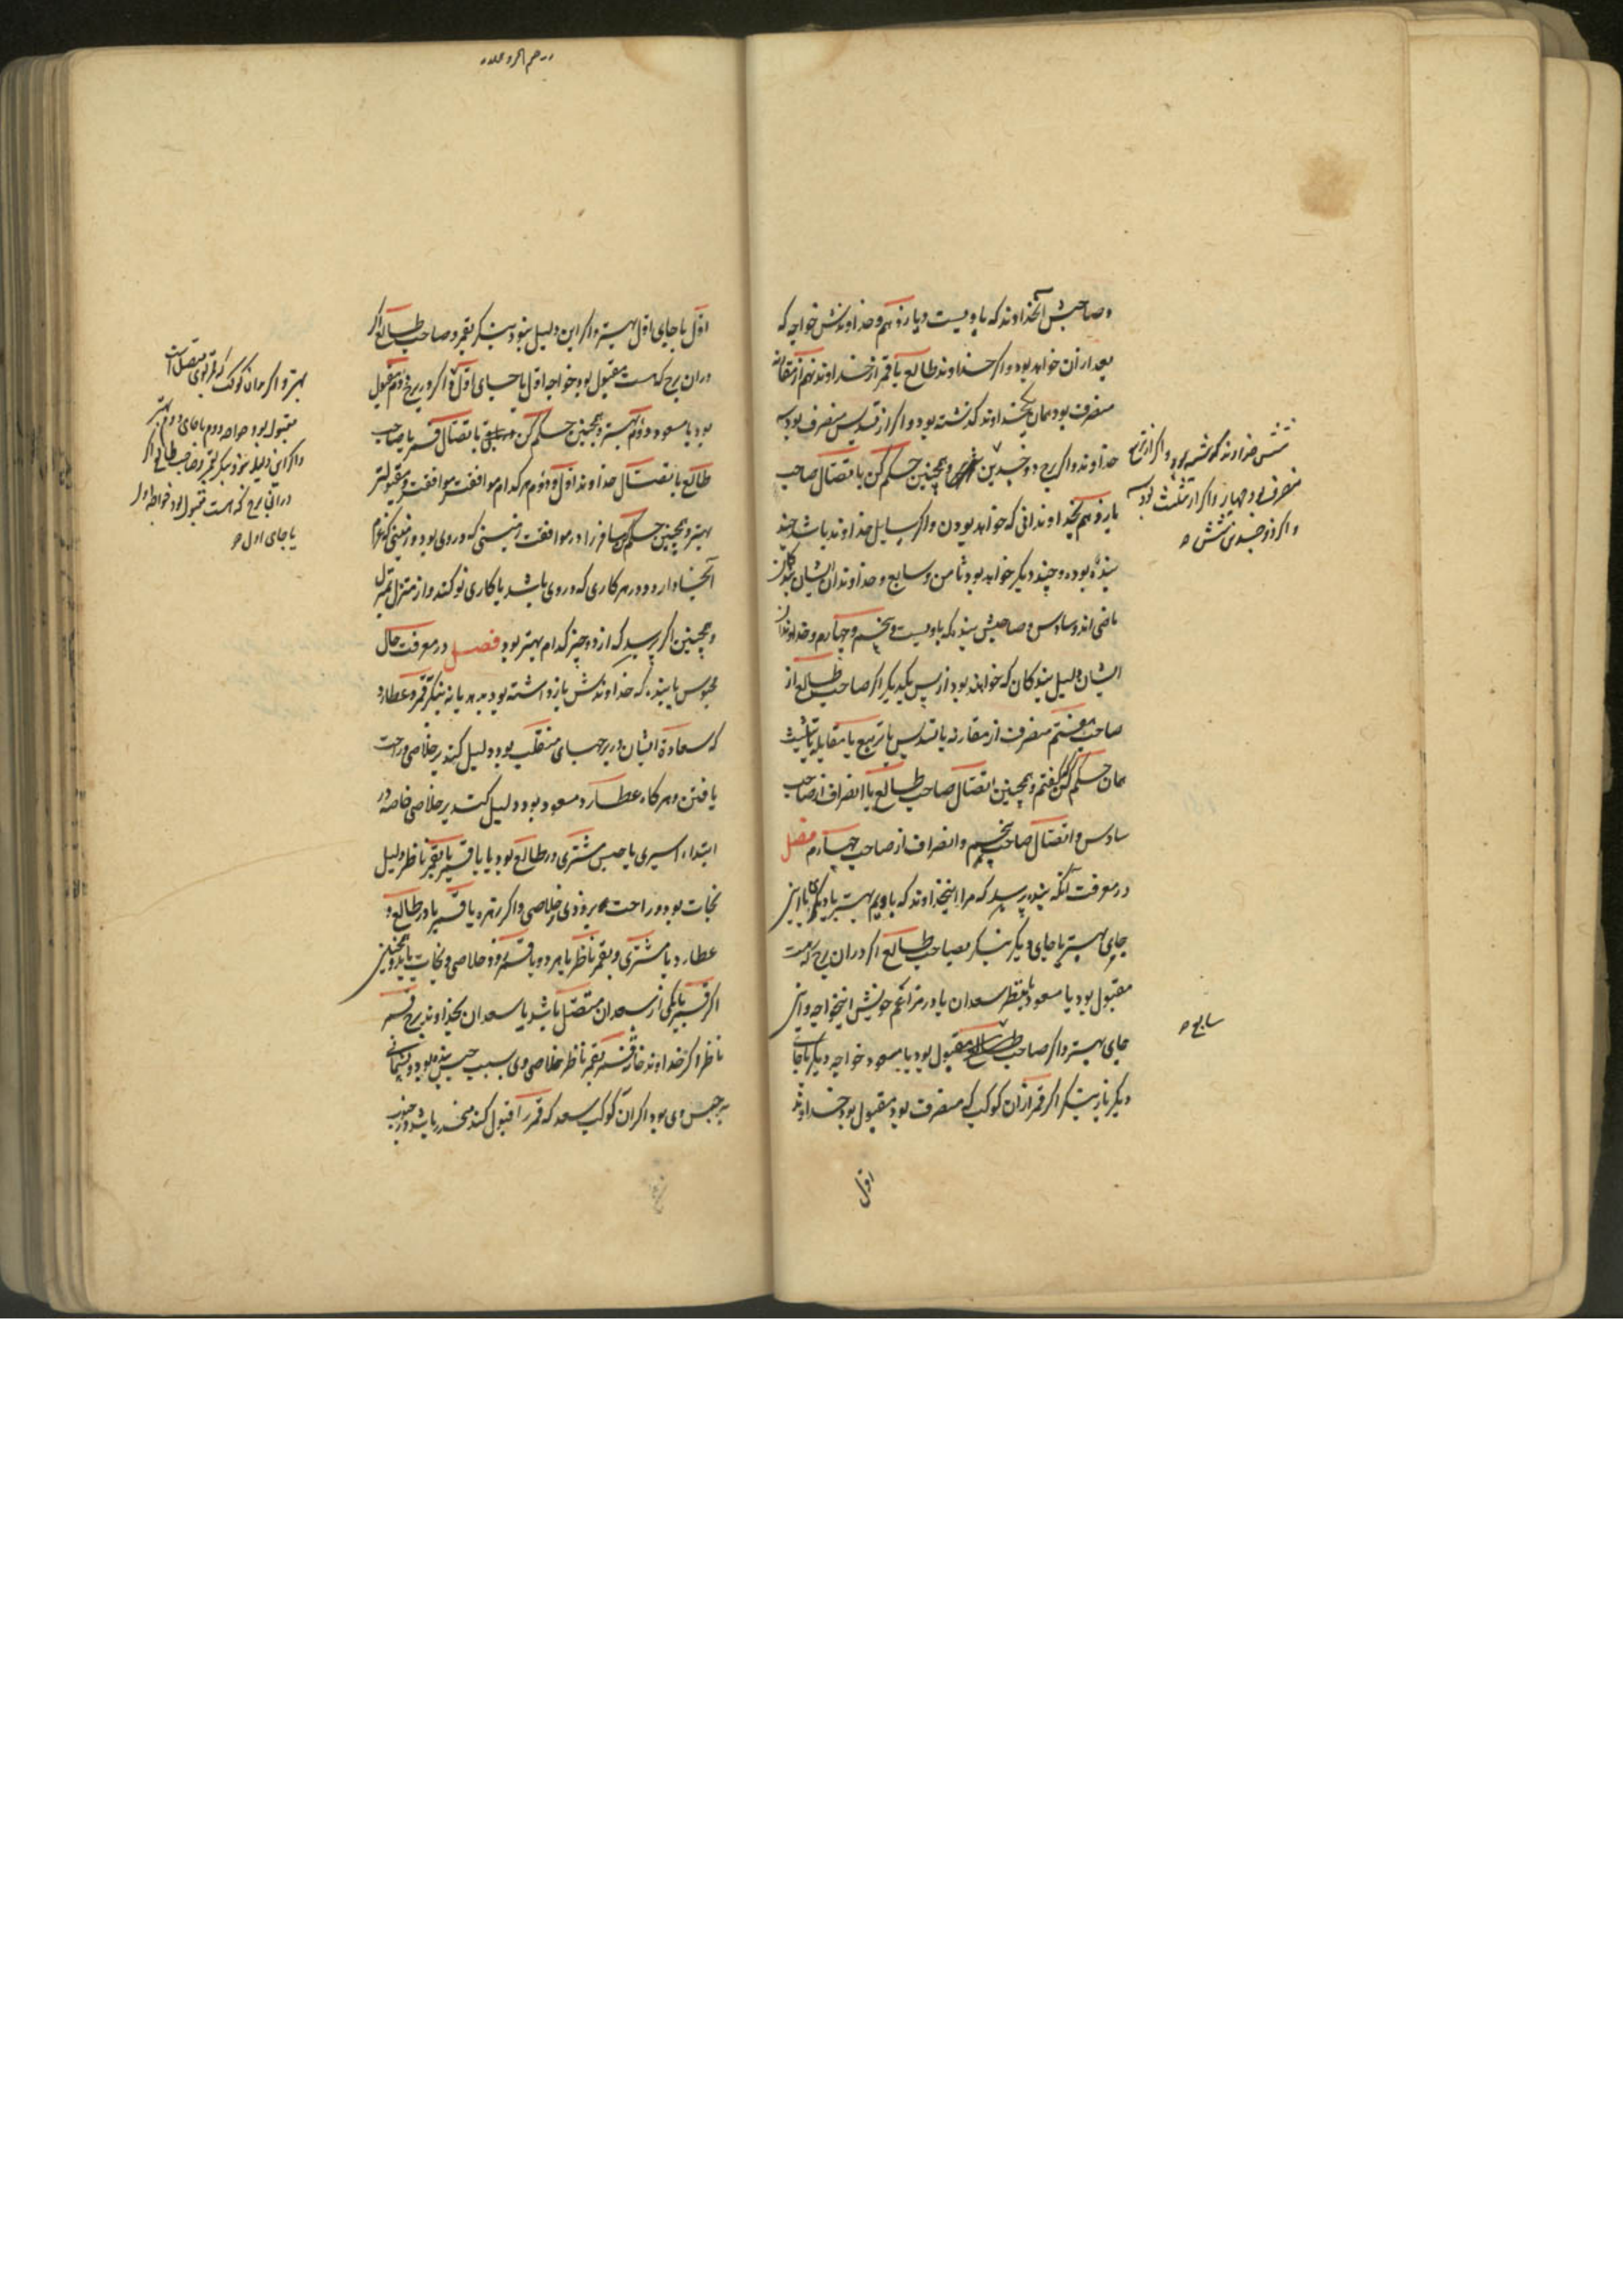 و صاحبش آنخداوند که با ویست و یازدهم و خداوندش خواجه که
بعد از آن خواهد بود و اگر خداوند طالع یا قمر از خداوند نهم از مقارنه
منصرف بود همان یکخداوند گذشته بود و اگر از تسدیس منصرف بود سه
خداوند و اگر برج دو جسدین و همچنین حکم کن باتصال صاحب
یازدهم بخداوندانی که خواهد بودن و اگر سایل خداوند باشد چند
بنده بوده و چند دیگر خواهد بود ثامن و سابع و خداوندان ایشان بندکان
ماضی‌اند و سادس و صاحبش بنده که با ویست و پنجم و چهارم و خداوندان
ایشان دلیل بندکان که خواهند بود از پس یکدیگر اگر صاحب طالع از
صاحب هفتم منصرف از مقارنه یا تسدیس یا تربیع یا مقابله یا تثلیث
همان حکم کن که گفتم و همچنین اتصال صاحب طالع یا انصراف از صاحب
سادس و اتصال صاحب پنجم و انصراف از صاحب چهارم فصل
در معرفت آنکه بنده پرسد که مرا اینخداوند که با ویم بهتر یا دیگری یا این
جای بهتر یا جای دیگر بنگر بصاحب طالع اگر در آن برج که هست
مقبول بود یا مسعود بنظر سعدان یا در مزاعم خویش اینخواجه و این
جای بهتر و اگر صاحب مقبول بود یا مسعود خواجه دیگر یا جای
دیگر باز بنگر اگر قمر از آن کوکب که منصرفست بود مقبول بود خداوند
اول
شش خداوند گذشته بود و اگر از تربیع
منصرف بود چهار و اگر از تثلیث بود سه
و اگر ذوجسدین شش
سابع
اول یا جای اول بهتر و اگر این دلیل نبود بنگر بقمر و صاحب طالع اگر
در آن برج که هست مقبول بود خواجه اول یا جای اول و اگر در برج دوم مقبول
بود یا مسعود دوم بهتر و همچنین حکم کن باتصال قمر یا صاحب
طالع باتصال خداوند اول و دوم هر کدام موافقتر موافقتر و مقبولتر
بهتر و همچنین حکم کن مسافر را در موافقت زمینی که در وی بود و زمینی که عزم
آنجا دارد و در هر کاری که در وی باشد یا کاری نو کند و از منزل بمنزل
و همچنین اگر پرسد که از دو چیز کدام بهتر بود فصل در معرفت حال
محبوس یا بنده که خداوندش باز داشته بود برهد یا نه بنگر بقمر و عطارد
که سعادة ایشان در برجهای منقلب بود دلیل کند بر خلاصی و راحت
یافتن و هرکاه عطارد مسعود بود دلیل کند بر خلاصی خاصه در
ابتداء اسیری یا حبس مشتری در طالع بود یا با قمر یا بقمر ناظر دلیل
نجات بود و راحت بزودی و خلاصی و اگر زهره با قمر یا در طالع و
عطارد با مشتری و بقمر ناظر یا هر دو با قمر زود خلاصی و نجات یابد و همچنین
اگر قمر بیکی از سعدان متصل باشد یا سعدان بخداوند برج قمر
ناظر و اگر خداوند خانه قمر بقمر ناظر خلاصی وی بسبب حبس بنده بود و پشیمانی
بر حبس وی بود اگر آن کوکب سعد که قمر را قبول کند منحدر باشد در جنوب
بهتر و اگر بدان کوکب که قمر بوی متصل است
مقبول بود خواجه دوم یا جای دوم بهتر
و اگر این دلیل نبود بنگر بقمر و صاحب طالع اگر
در آن برج که هست مقبول بود خواجه اول
یا جای اول